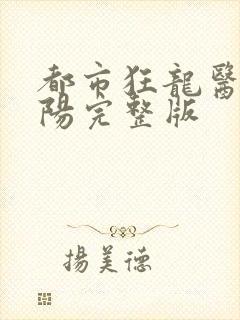 都市狂龍醫
陽完整版
揚美德